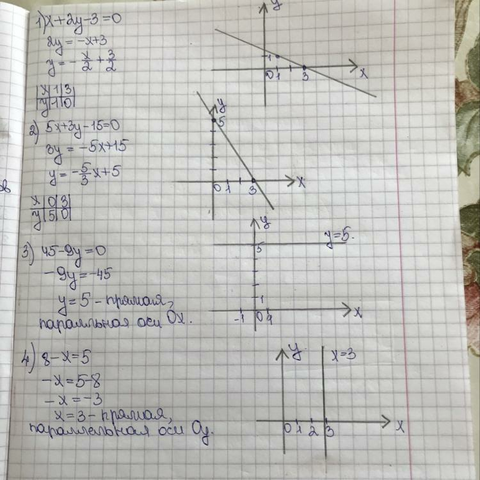 1) x+2y-3=0
2y=-x+3
y=-x/2+3/2
x 1 3
y 1 0
y
1
0 1 3 x
2) 5x+3y-15=0
3y=-5x+15
y=-5/3x+5
x 0 3
y 5 0
y
5
0 1 3 x
3) 45-9y=0
-9y=-45
y=5-прямая,
параллльная оси Ox.
y
5 y=5.
1
-1 0 1 x
4) 8-x=5
-x=5-8
-x=-3
x=3-прямая,
параллельная оси Oy.
y x=3
0 1 2 3 x